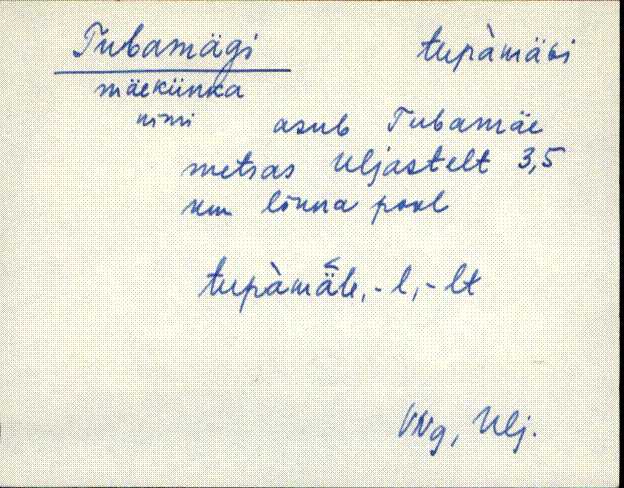 Tubamägi tupàmäɢi
mäekünka
nimi asub Tubamäe
metsas Uljastelt 3,5
km lõuna pool
tupàmäle, -l, -lt
VNg, Ulj.